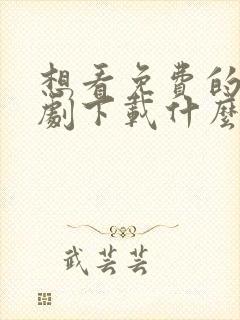 想看免费的
劇下載什麼
武芸芸